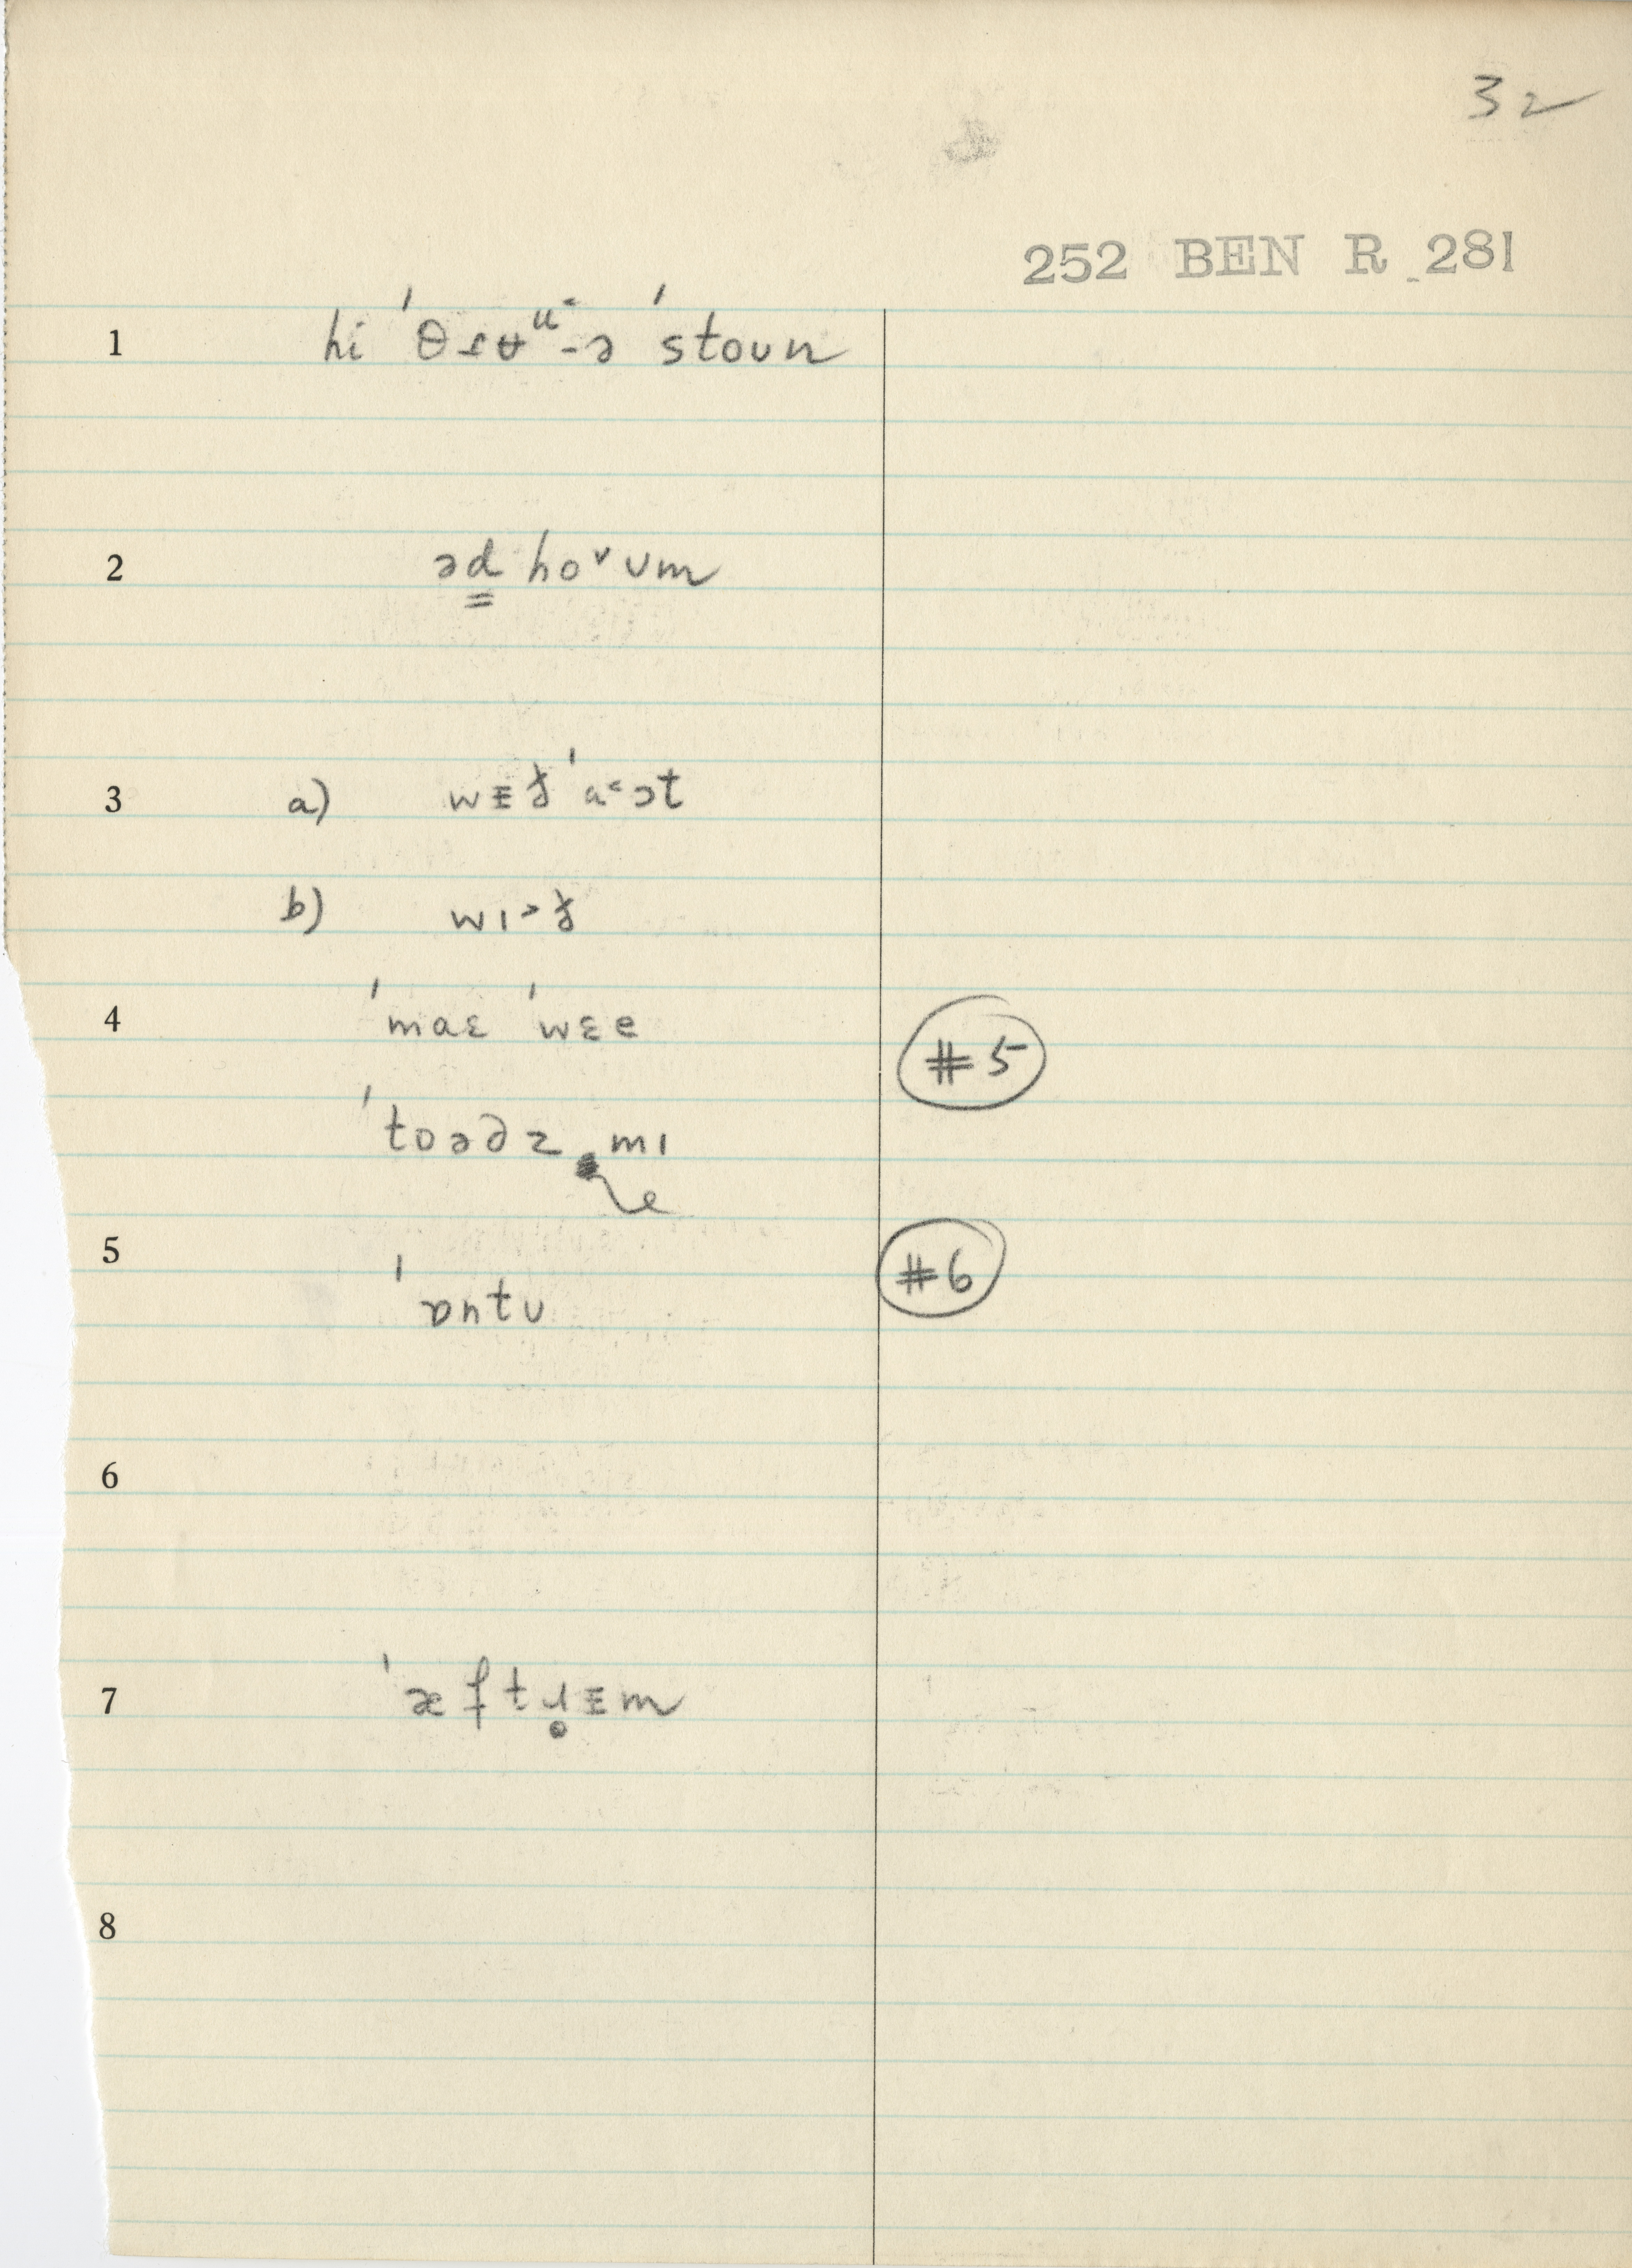 32
252 BEN R 281
1 hi ˈθɾʉᵘ˂-ə ˈstoun
2 əd ho˅ʊm
3 a) wᴟɟ ˈa˂ɔt
b) wɪ˃ɟ
4 ˈmaɛ ˈwɛe #5
ˈtoəʒz mɪ e
5 #6
ˈɒntʊ
6
7 ˈæftɹ̥ᴟm
8